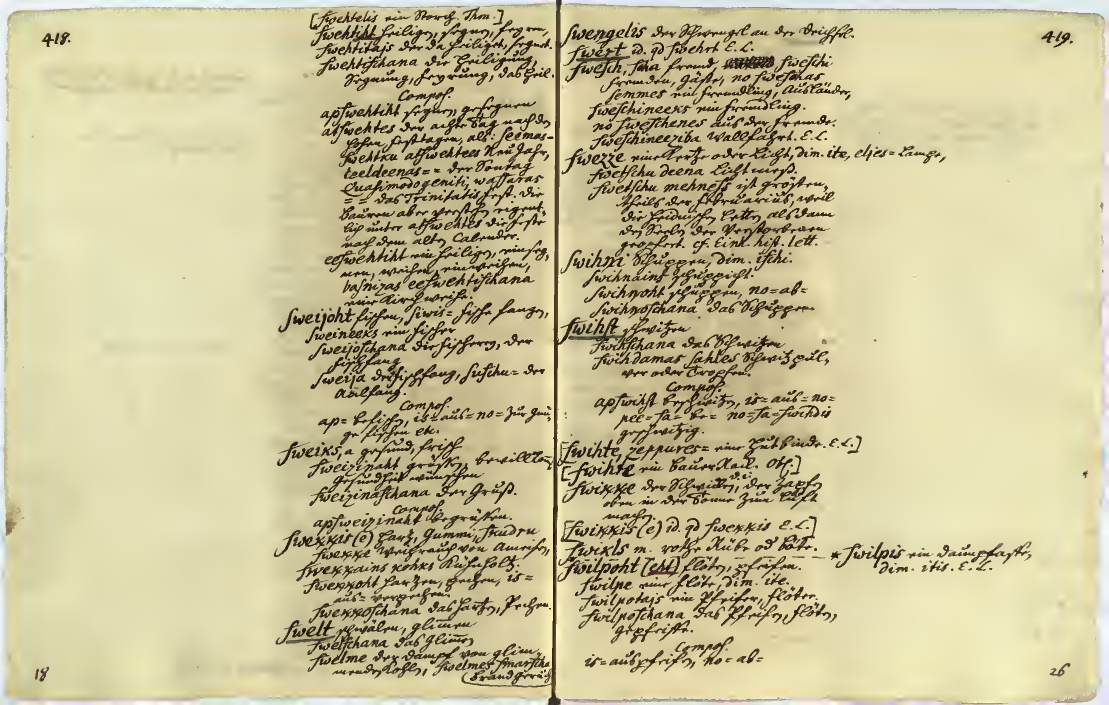 418.
[Swehtelis ein Storch. Thm.]
Swehtiht heiligen, segnen, feyren,
Swehtitajs der da heiliget, segnet.
Swehtischana die Heiligung,
Segnung, feyrung, das heil.
Compos.
apswehtiht segnen, gesegnen
atswehtes der achte Tag nach den
hohen festtagen, als: Seemas-
swehtku atswehtes Neu Jahr,
leeldeenas = = der Sontag
Quasimodogeniti, wassaras
= = das Trinitatis fest. die
Bauren aber verstehen eigent-
lich unter atswehtes die feste
nach dem alten Calender.
eeswehtiht ein heiligen, einseg-
nen, weihen, einweihen,
basnizas eeswehtischana
eine Kirchweihe.
Sweijoht fischen, siwis = fische fangen,
Sweineeks ein fischer
Sweijoschana die fischerey, der
fischfang
Sweija der fischfang, suschu = der
Aalfang.
Compos.
ap= befischen, is= aus= no= zur gnü-
ge fischen etc.
Sweiks, a gesund, frisch
Sweizinaht grüssen, bewillkom
gesundheit wünschen
Sweizinaschana der Gruß.
Compos.
apsweizinaht begrüssen.
Swekkis (e) Harz, Gummi, skudru
Swekke Weihrauch von Ameisen,
Swekkains kohks Kühnholz.
Swekkoht harzen, pechen, is=
aus= verpechen.
Swekkoschana das Hartzen, Pechen.
Swelt schwälen, glimen
Swelschana das Glimen
Swelme der Dampf von glim-
menden Kohlen, Swelmes smarscha
Brandgeruch
18
419.
Swengelis der Schwengel an der Deichsel.
Swert id. qd swehrt E. L.
Swesch, scha fremd, sweschi
fremden, gäste, no sweschas
semmes ein fremdling, Ausländer,
Sweschineeks ein fremdling.
no sweschenes aus der fremde.
Sweschineeziba Wallfahrt. E. L.
Swezze eine Kertze oder Licht, dim. ite, eljes = Lampe,
Swetschu deena Lichtmeß.
Swetschu mehness ist größten-
theils der februarius, weil
die heidnischen Letten alsdann
den Seelen der Verstorbenen
geopfert. cf. Einh. hist. lett.
Swihni Schuppen, dim. ischi.
Swihnains schuppicht.
Swihnoht schuppen, no= ab=
Swihnoschana das Schuppen
Swihst schwitzen
Swihschana das Schwitzen
Swihdamas sahles Schwitz pul-
ver oder Tropfen.
Compos.
apswihst beschwitzen, is= aus= no=
pee= sa= be= no= sa= swihdis
geschwitzig.
[Swihte, zeppures = eine Hutbinde. E. L.]
[Swihte ein Bauer Kail. Obs.]
Swikke der Schwicker, d. i. der Zapfe
oben in der Tonne zum Luft
machen.
[Swikkis (e) id. qd swekkis E. L.]
Swikls m. rothe Rübe od Bete.
Swilpoht [eht] flöten, pfeifen. * Swilpis ein Daumpfaffe,
dim. itis. E. L.
Swilpe eine flöte, dim. ite.
Swilpotajs ein Pfeifer, flöter.
Swilposchana das Pfeifen, flöten,
gepfeiffe.
Compos.
is= auspfeifen, no= ab=
26